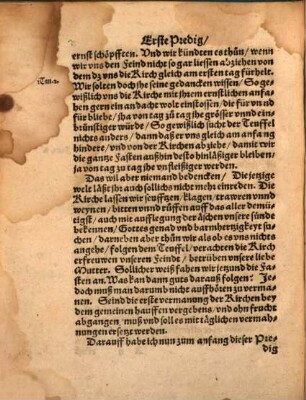 Erste Predig/
ernst schöpfften. Vnd wir kündten es thůn/ wenn
wir vns den Feind nicht so gar liessen abziehen von
dem dz vns die Kirch gleich am ersten tag fürhelt.
Wir solten doch jhe eins gedancken wissen/ So ge
wißlich vns die Kirche mit jhrem ernstlichen anfan
gen gern ein andacht wolt einstossen/ die für vnd
für bliebe/ jha von tag zů tag jhe grösser vnnd ein
brünstiger würde/ So gewißlich sucht der Teuffel
nichts anders/ dann daß er vns gleich am anfang
hindere/ vnd von der Kirchen abziehe/ damit wir
die gantze Fasten außhin desto hinläßiger bleiben/
ja von tag zů tag jhe vnfleissiger werden.
Das wil aber niemand bedencken/ Die jetzige
welt läßt jhr auch sollichs nicht mehr einreden. Die
Kirche lassen wir seufftzen/ klagen/ trawren vnnd
weynen/ bitten vnnd růffen auff das aller demů
tigst/ auch mit aufflegung der äschen vnsere sünde
bekennen/ Gottes genad vnd barmhertzigkeyt sů
chen/ darneben aber thůn wir als ob es vns nichts
angehe/ folgen dem Teuffel/ verachten die Kirch
erfreuwen vnseren Feindt/ betrüben vnsere liebe
Mutter. Sollicher weiß fahen wir jetzund die Fa
sten an. Was kan dann guts darauß folgen? Je
doch muß man darumb nicht auffhören zu verma
nen. Seind die erste vermanung der Kirchen bey
dem gemeinen hauffen vergebens/ vnd ohn frucht
abgangen/ muß vnd soll es mit täglichen vermah
nungen ersetzt werden.
Darauff habe ich nun zum anfang dieser Pre
dig